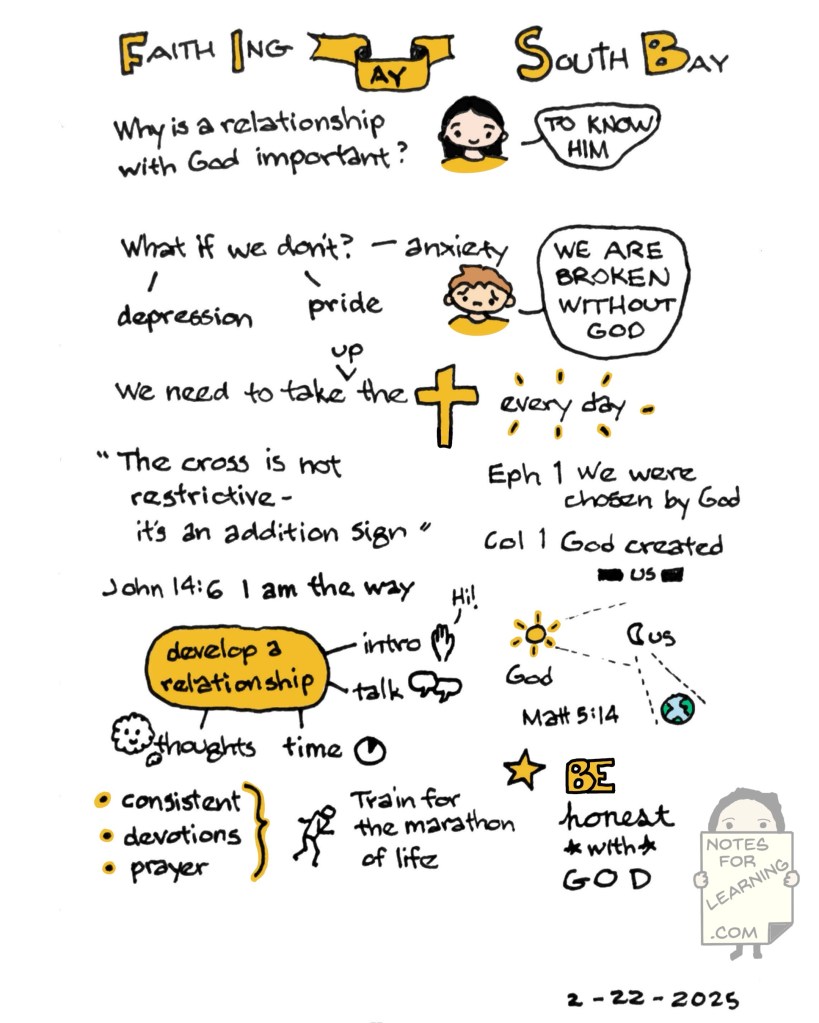 FAITH ING AY SOUTH BAY
Why is a relationship
with God important?
TO KNOW
HIM
What if we don't? - anxiety
depression
pride
WE ARE
BROKEN
WITHOUT
GOD
up
We need to take the every day
"The cross is not
restrictive-
it's an addition sign"
Eph 1 We were
chosen by God
Col 1 God created
us
John 14:6 I am the way
Hi!
develop a
relationship
intro
talk
thoughts
time
God
us
Matt 5:14
consistent
devotions
prayer
Train for
the marathon
of life
BE
honest
with
GOD
NOTES
FOR
LEARNING
.COM
2-22-2025